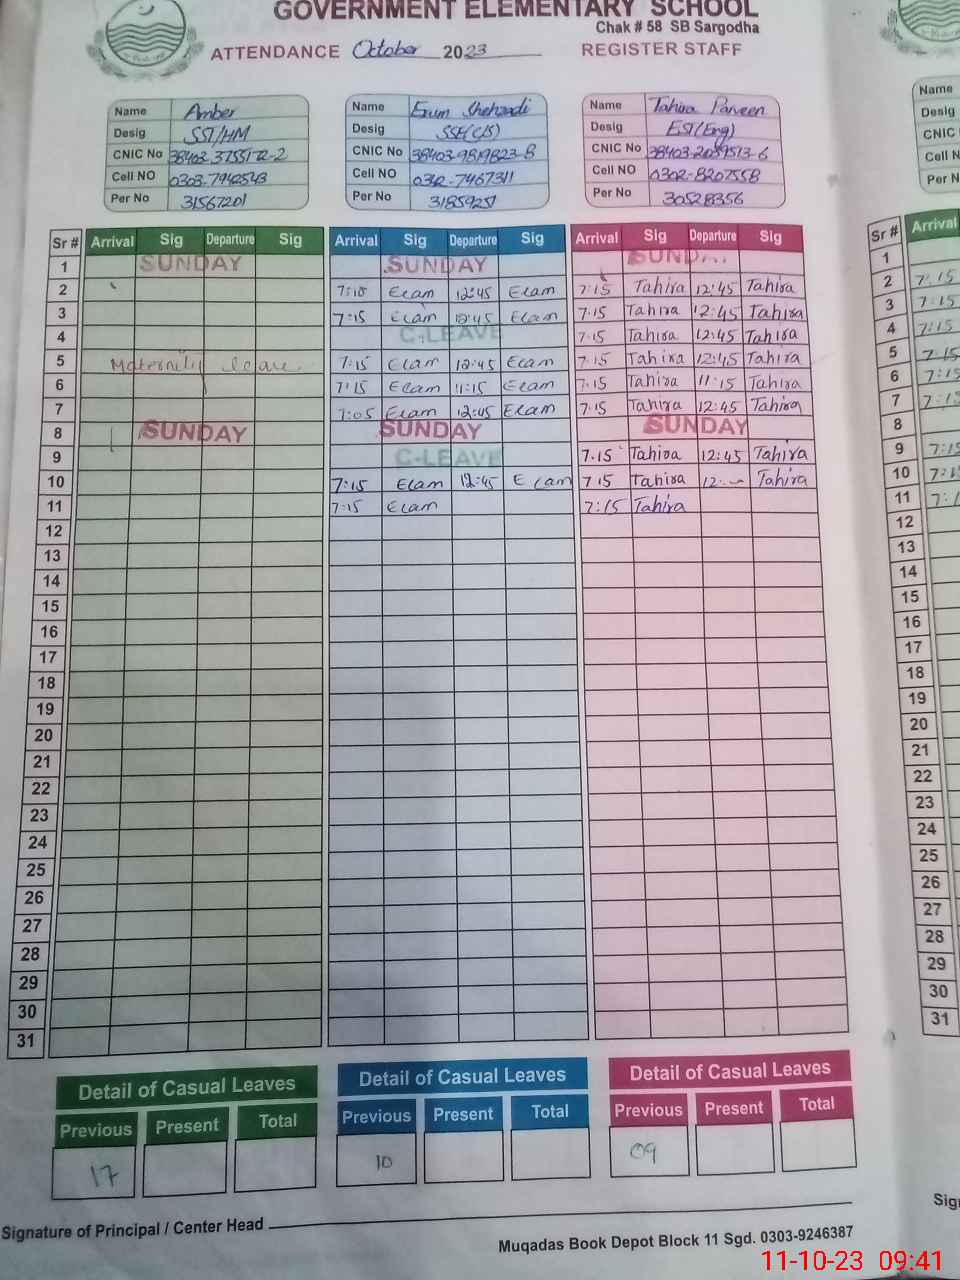 GOVERNMENT ELEMENTARY SCHOOL
Chak # 58 SB Sargodha
ATTENDANCE October 2023 REGISTER STAFF
Name Amber Name Erum Shehzadi Name Tahira Parveen Name
Desig SST/HM Desig SSE(C/S) Desig EST(Eng) Desig
CNIC No CNIC No 38403-9819823-8 CNIC No 38403-2039513-6 CNIC
Cell NO 0303-7942543 Cell NO 0342-7467311 Cell NO 0302-8207558 Cell N
Per No 31567201 Per No 31859251 Per No 30528356 Per N
Sr # Arrival Sig Departure Sig Arrival Sig Departure Sig Arrival Sig Departure Sig Sr # Arrival
1 SUNDAY SUNDAY SUNDA 1
2 7:10 Eram 12:45 Eram 7:15 Tahira 12:45 Tahira 2 7:15
3 7:15 Eram 12:45 Eram 7:15 Tahira 12:45 Tahira 3 7:15
4 C-LEAVE 7:15 Tahira 12:45 Tahira 4 7:15
5 Maternity leave 7:15 Eram 12:45 Eram 7:15 Tahira 12:45 Tahira 5 7:15
6 7:15 Eram 11:15 Eram 7:15 Tahira 11:15 Tahira 6 7:15
7 7:05 Eram 12:45 Eram 7:15 Tahira 12:45 Tahira 7 7:15
8 SUNDAY SUNDAY SUNDAY 8
9 C-LEAVE 7:15 Tahira 12:45 Tahira 9 7:15
10 7:15 Eram 12:45 Eram 7:15 Tahira Tahira 10 7:1
11 7:15 Eram 7:15 Tahira 11 7:1
12 12
13 13
14 14
15 15
16 16
17 17
18 18
19 19
20 20
21 21
22 22
23 23
24 24
25 25
26 26
27 27
28 28
29 29
30 30
31 31
Detail of Casual Leaves Detail of Casual Leaves Detail of Casual Leaves
Previous Present Total Previous Present Total Previous Present Total
17 10 09
Signature of Principal / Center Head
Muqadas Book Depot Block 11 Sgd. 0303-9246387
11-10-23 09:41